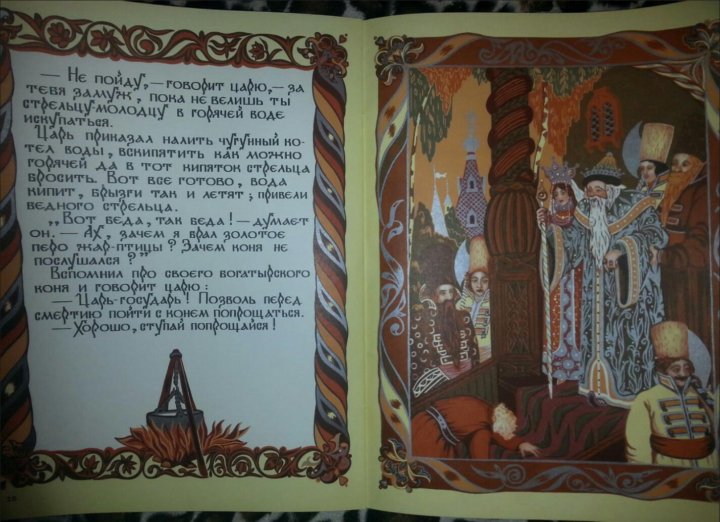 — Не пойду, — говорит царю, — за
тебя замуж, пока не велишь ты
стрельцу-молодцу в горячей воде
искупаться.
Царь приказал налить чугунный ко-
тел воды, вскипятить как можно
горячей да в тот кипяток стрельца
бросить. Вот все готово, вода
кипит, брызги так и летят; привели
бедного стрельца.
„Вот беда, так беда! — думает
он. — Ах, зачем я брал золотое
перо жар-птицы? Зачем коня не
послушался?"
Вспомнил про своего богатырского
коня и говорит царю:
— Царь-государь! Позволь перед
смертию пойти с конем попрощаться.
— Хорошо, ступай попрощайся!